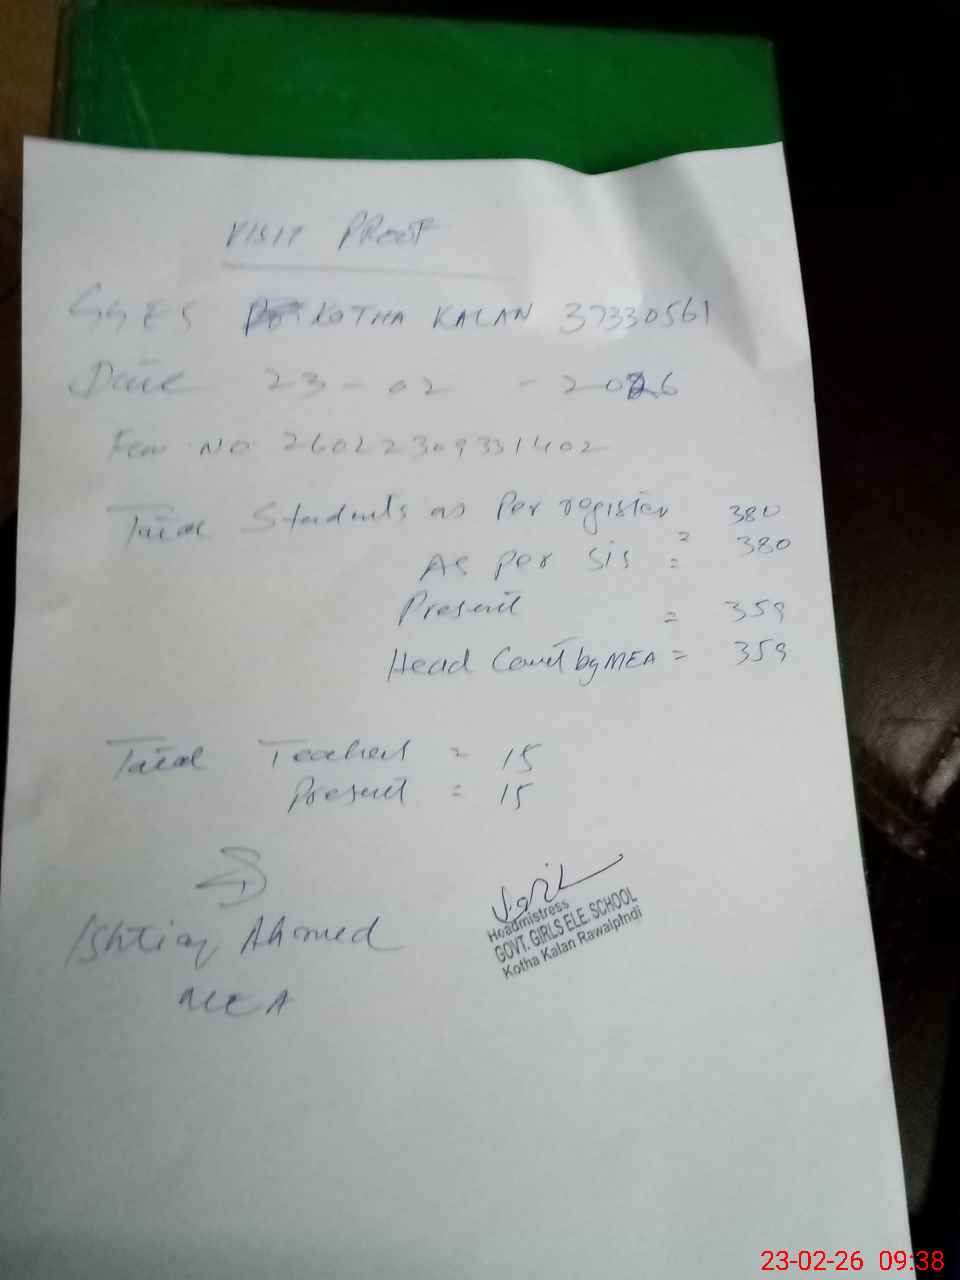 VISIT PROOF
GGES KOTHA KALAN 37330561
Date 23-02-2026
Fem No 26022309331402
Total Students as Per register 380
As per SIS = 380
Present = 359
Head Count by MEA = 359
Total Teachers = 15
Present = 15
Ishtiaq Ahmed
MEA
Headmistress
GOVT. GIRLS ELE. SCHOOL
Kotha Kalan Rawalpindi
23-02-26 09:38